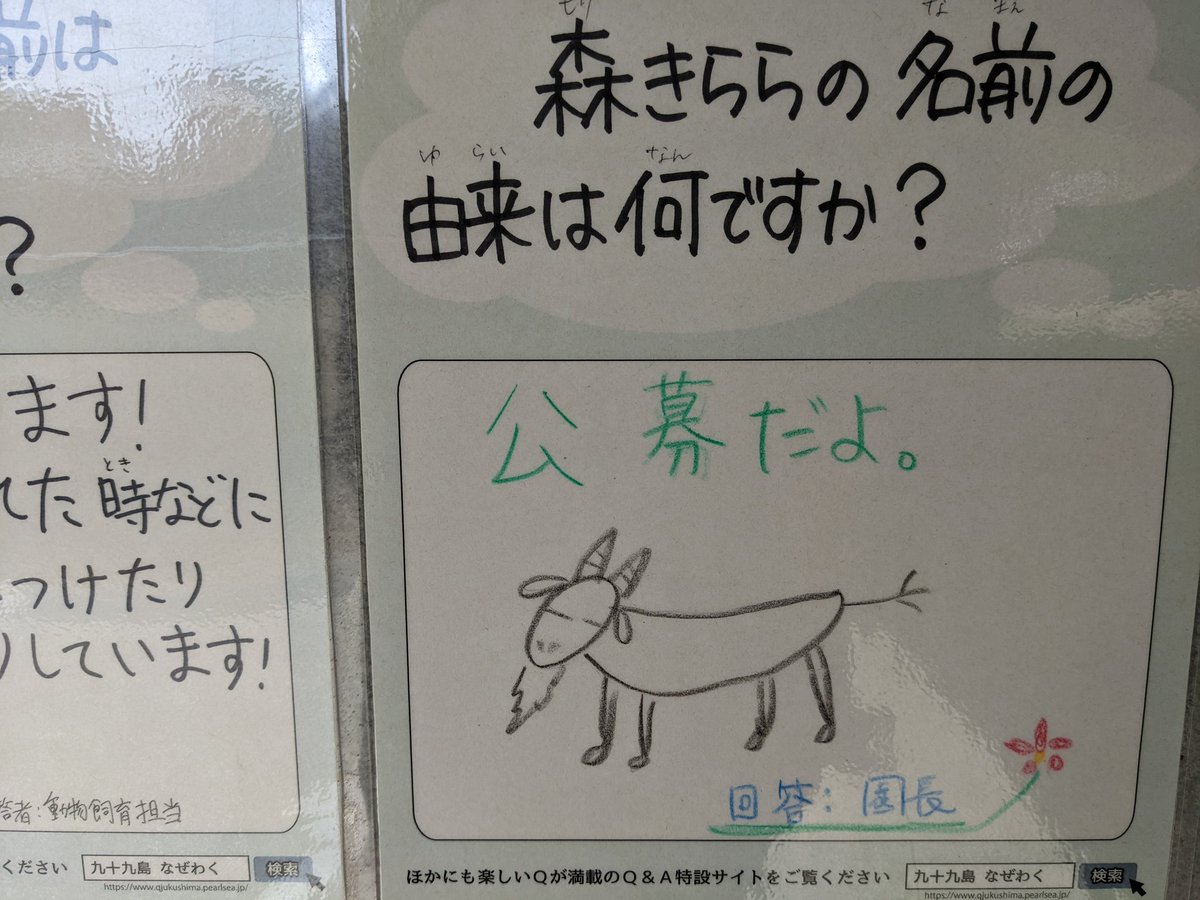 前は
？
ます！
てた時などに
とき
つけたり
しています！
答者：動物飼育担当
ください
九十九島 なぜわく
検索
https://www.qjukushima.pearlsea.jp/
もり な まえ
森きららの名前の
ゆ らい なん
由来は何ですか？
公募だよ。
回答：園長
ほかにも楽しいQが満載のQ＆A特設サイトをご覧ください
九十九島 なぜわく
検索
https://www.qjukushima.pearlsea.jp/